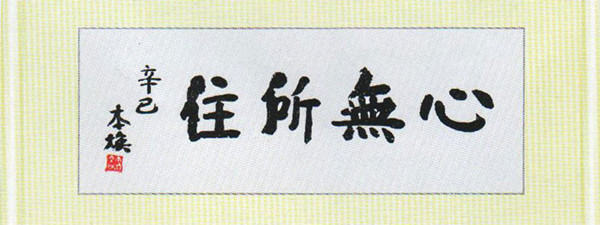 心無所住
辛巳
本焕